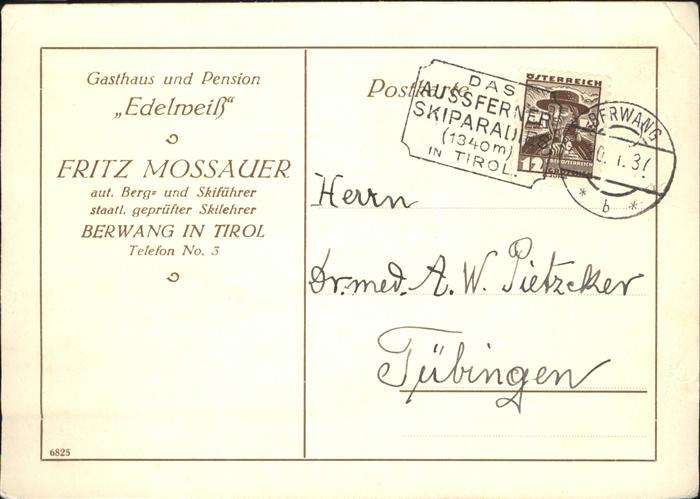 Gasthaus und Pension
„Edelweiß“
FRITZ MOSSAUER
aut. Berg= und Skiführer
staatl. geprüfter Skilehrer
BERWANG IN TIROL
Telefon No. 3
6825
Postkarte
DAS
AUSSFERNER
SKIPARADIES
(1340 m)
IN TIROL.
ÖSTERREICH
12
BERWANG
* b *
Herrn
Dr. med. A. W. Pietzcker
Tübingen